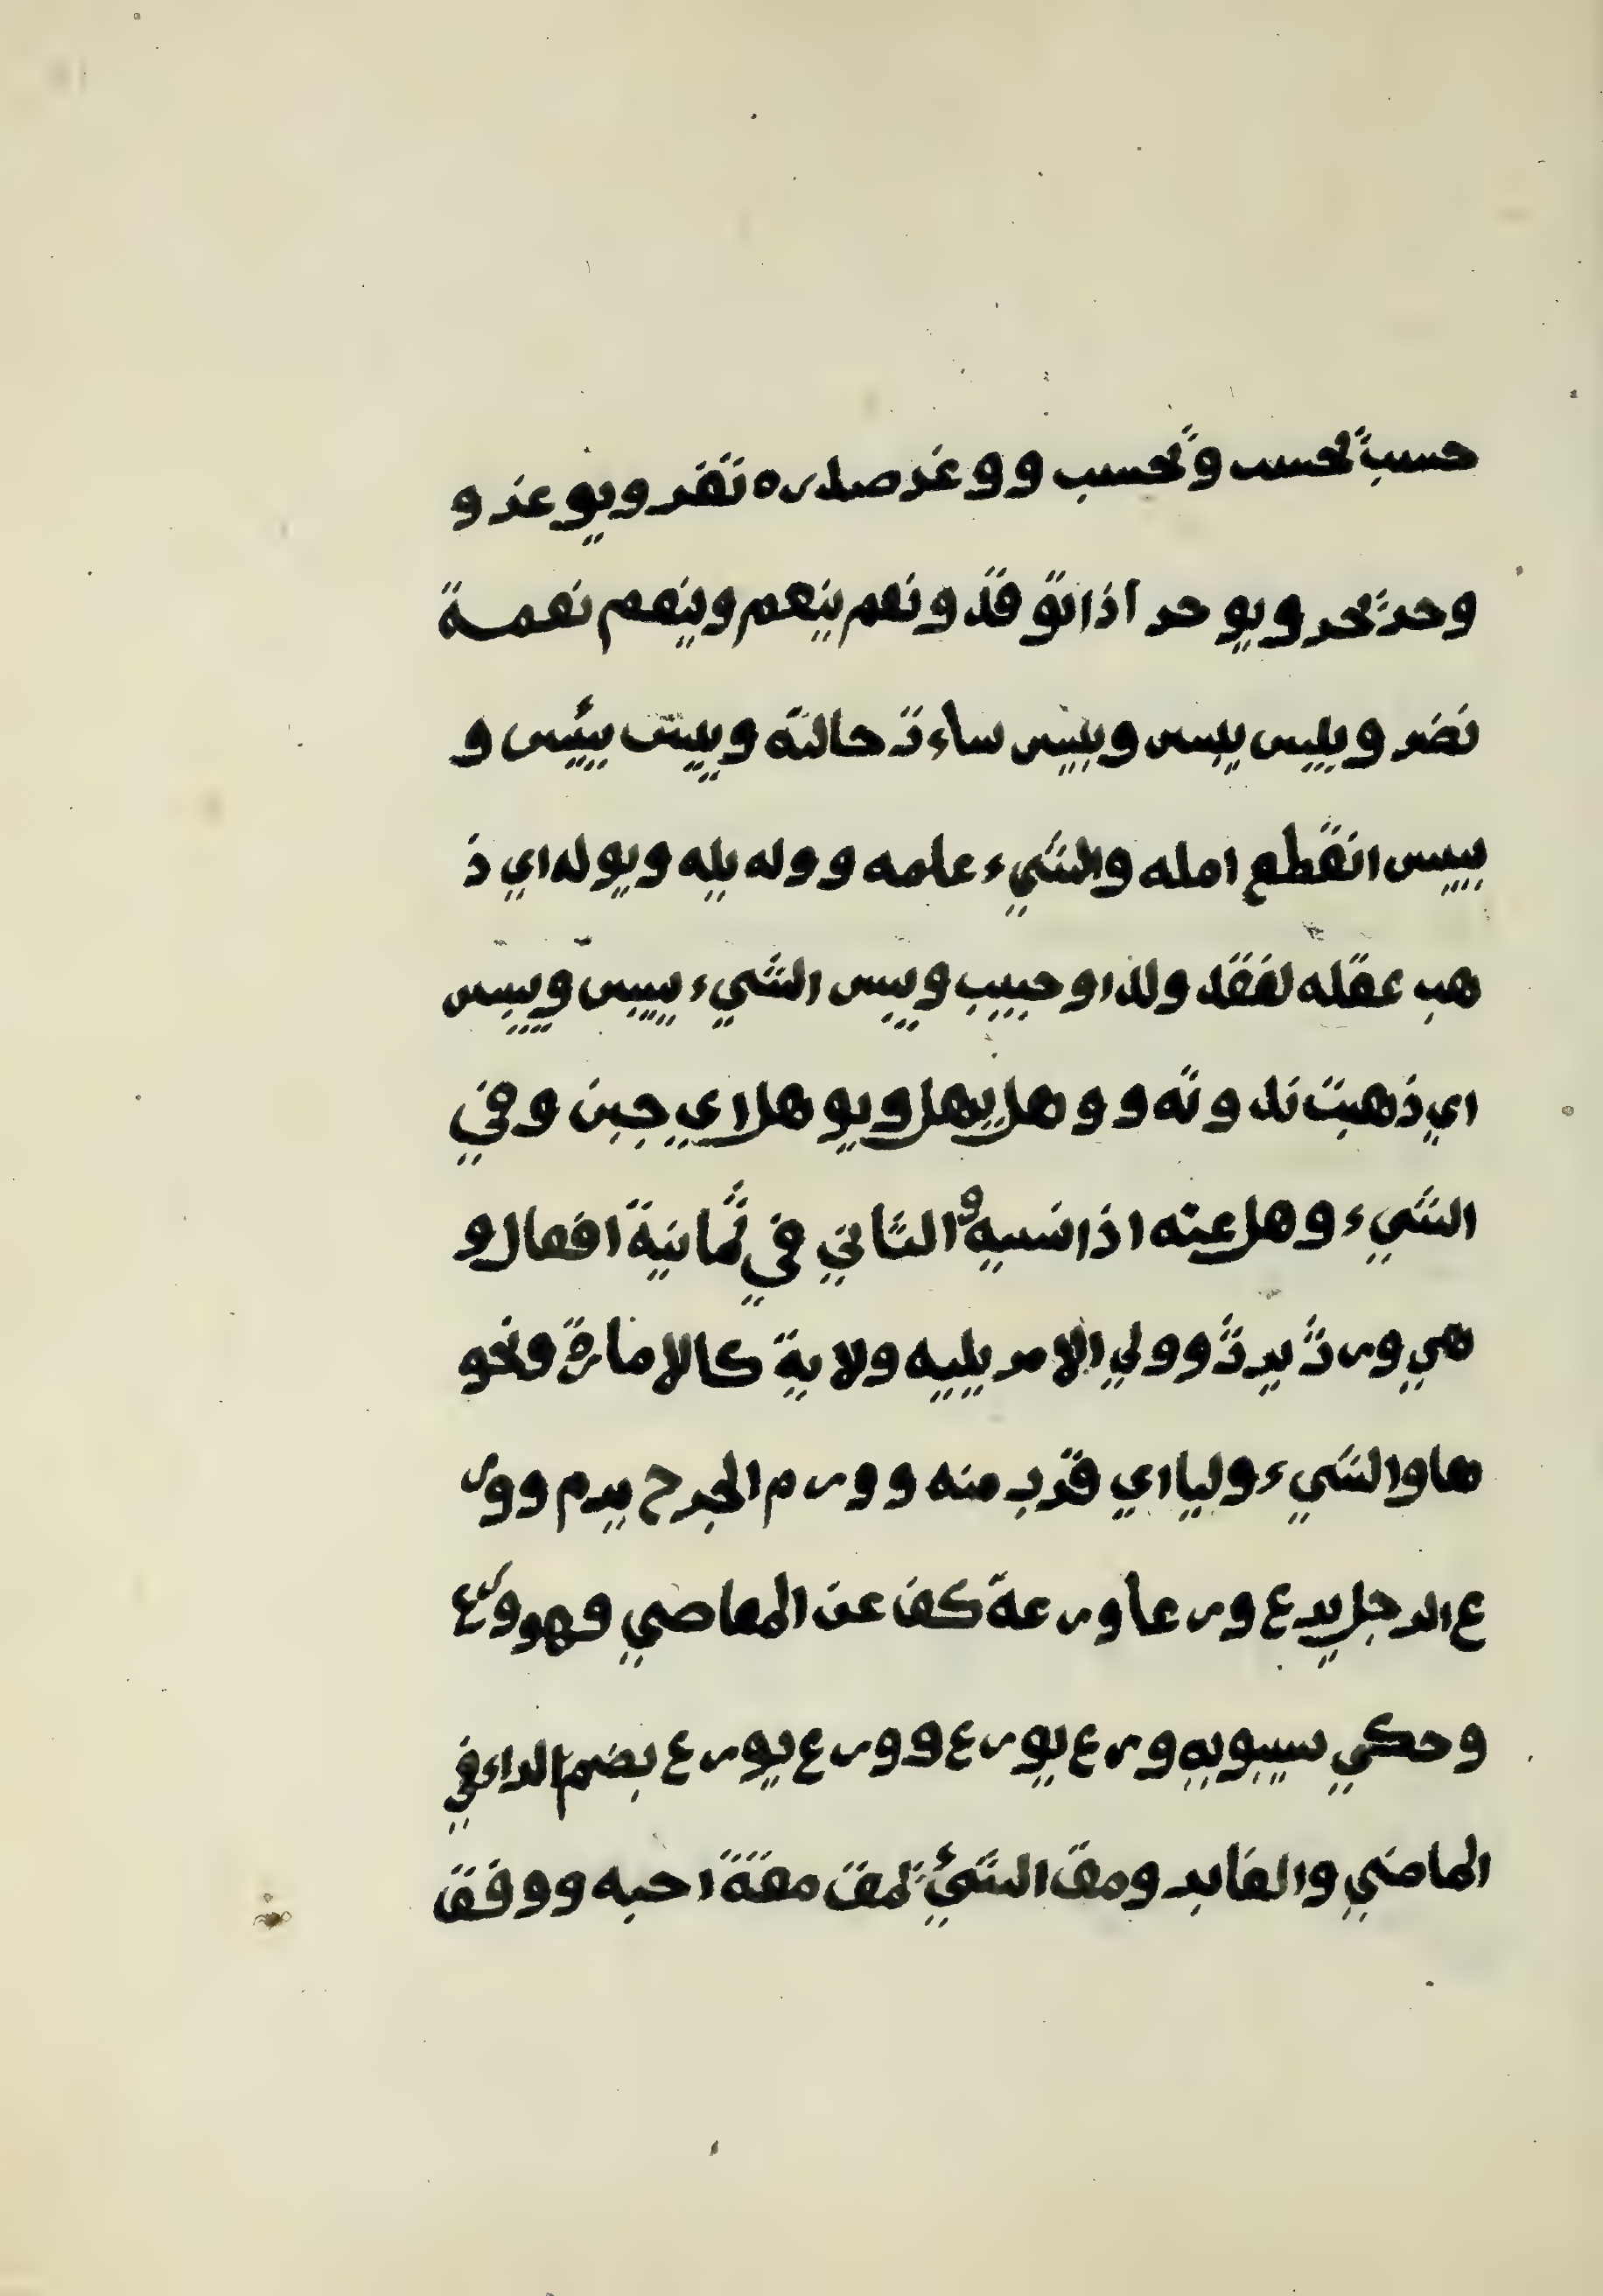 حسب تحسب وتحسب ووغر صدره تغر ويوعز و
وحر تحر ويوحر اذا توقد ونعم ينعم وينعم نعمة
نضر وبيس يبس ويبيس ساءت حالته وييس ييئس و
ييبس انقطع امله والشيء علمه ووله يله ويوله اي ذ
هب عقله لفقد ولد او حبيب ويبس الشيء ييبس وييبس
اي ذهبت ندوته ووهل يهل ويوهل اي جبن وفي
الشيء وهل عنه اذا نسيه والثاني في ثمانية افعال و
هي ورث يرث وولي الامر يليه ولاية كالامارة ونحو
ها والشيء وليا اي قرب منه وورم الجرح يرم وور
ع الرجل يرع ورعا ورعة كف عن المعاصي فهو ورع
وحكي سيبويه ورع يورع وورع يورع بضم الراء في
الماضي والغابر ومق الشئ يمق مقة احبه ووفق